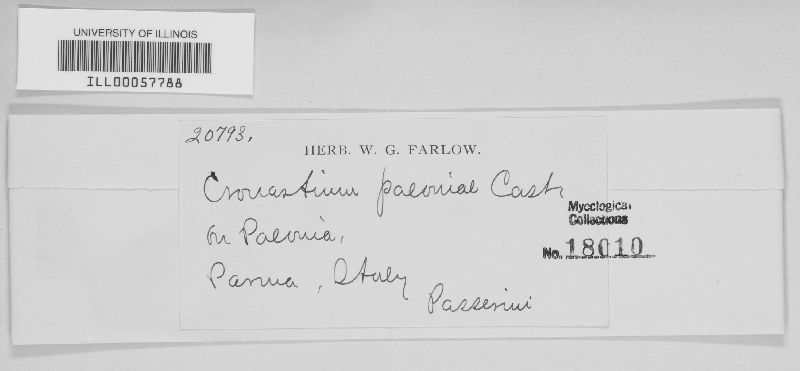 UNIVERSITY OF ILLINOIS
ILL00057788
20793.
HERB. W. G. FARLOW.
Cronartium paeoniae Cast.
On Paeonia,
Parma, Italy
Passerini
Mycological
Collections
No. 18010